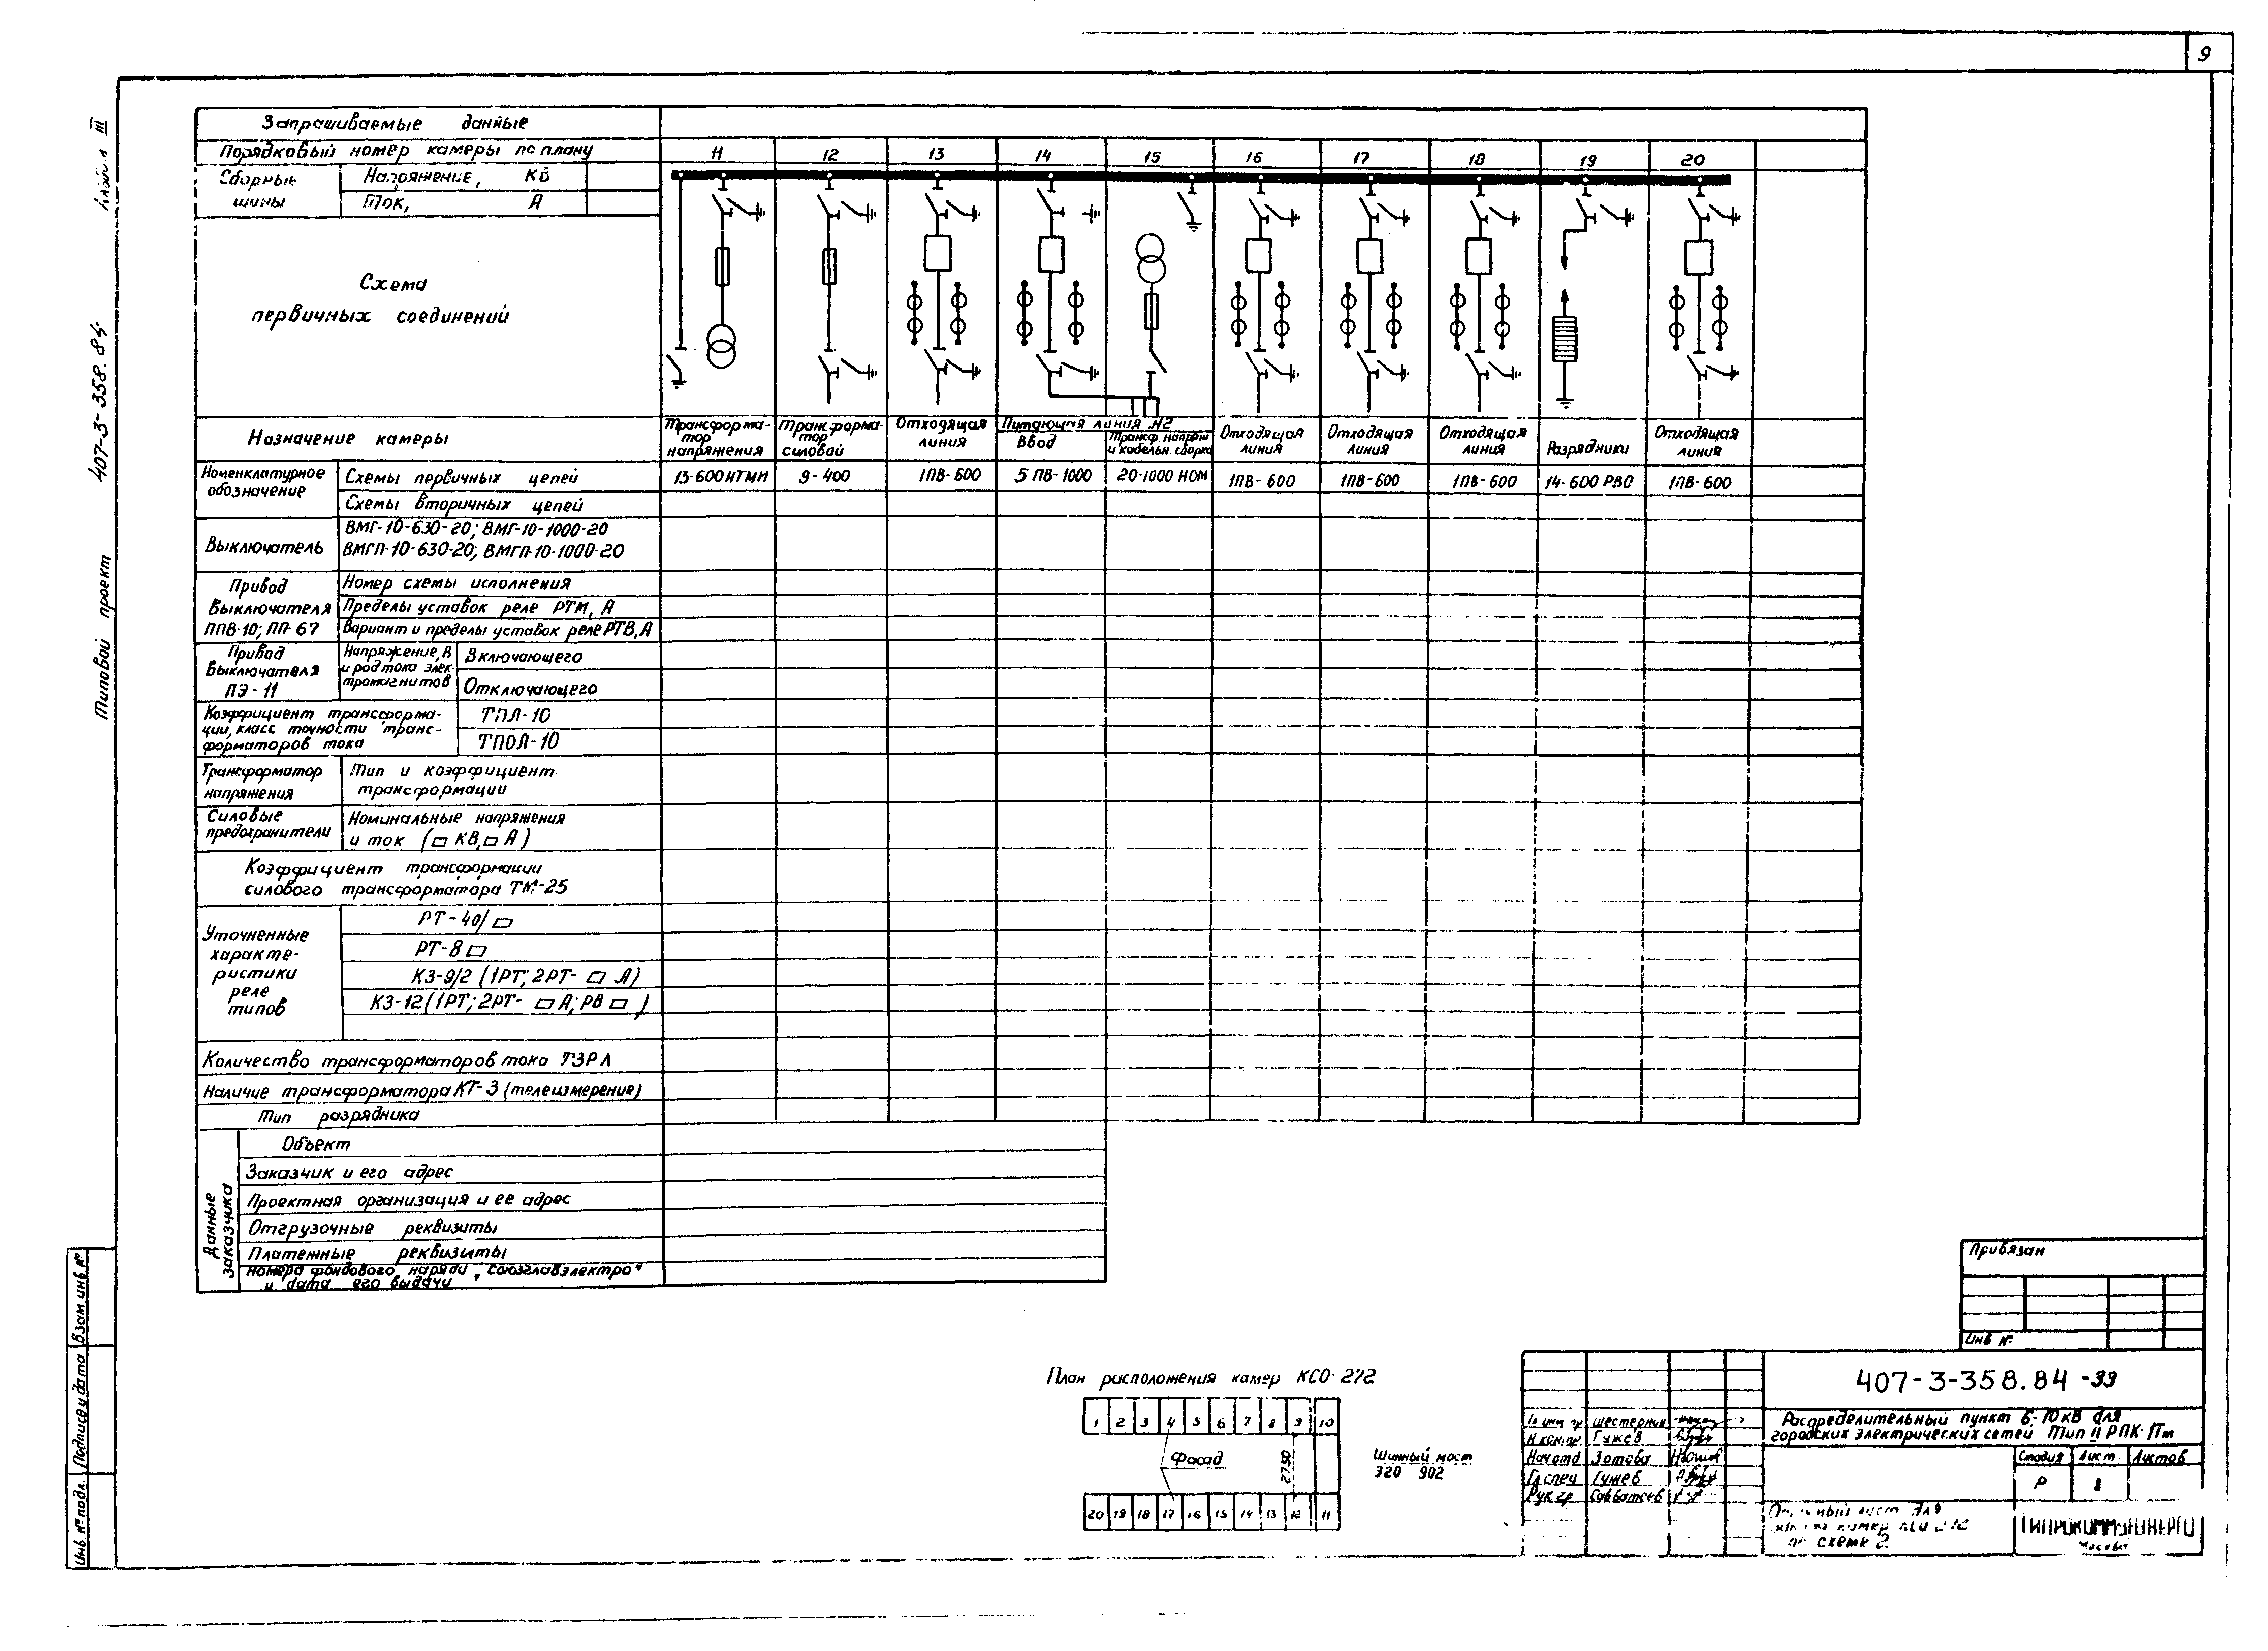 9
Альбом III
407-3-358.84
Типовой проект
Запрашиваемые данные
Порядковый номер камеры по плану
11 12 13 14 15 16 17 18 19 20
Сборные шины
Напряжение, КВ
Ток, А
Схема
первичных соединений
Назначение камеры
Трансформа-
тор
напряжения
Трансформа-
тор
силовой
Отходящая
линия
Питающая линия №2
Ввод
Трансф. напряж
и кабельн. сборка
Отходящая
линия
Отходящая
линия
Отходящая
линия
Разрядники
Отходящая
линия
Номенклатурное
обозначение
Схемы первичных цепей
13-600 НТМИ
9-400
1ПВ-600
5 ПВ-1000
20-1000 НОМ
1ПВ-600
1ПВ-600
1ПВ-600
14-600 РВО
1ПВ-600
Схемы вторичных цепей
Выключатель
ВМГ-10-630-20; ВМГ-10-1000-20
ВМГП-10-630-20; ВМГП-10-1000-20
Привод
Выключателя
ППВ-10; ПП-67
Номер схемы исполнения
Пределы уставок реле РТМ, А
Вариант и пределы уставок реле РТВ, А
Привод
Выключателя
ПЭ-11
Напряжение, В
и род тока элек-
тромагнитов
Включающего
Отключающего
Коэффициент трансформа-
ции, класс точности транс-
форматоров тока
ТПЛ-10
ТПОЛ-10
Трансформатор
напряжения
Тип и коэффициент
трансформации
Силовые
предохранители
Номинальные напряжения
и ток (▭ КВ, ▭ А)
Коэффициент трансформации
силового трансформатора ТМ-25
Уточненные
характе-
ристики
реле
типов
РТ-40/▭
РТ-8▭
КЗ-9/2 (1РТ; 2РТ- ▭ А)
КЗ-12 (1РТ; 2РТ- ▭ А; РВ ▭ )
Количество трансформаторов тока ТЗРЛ
Наличие трансформатора КТ-3 (телеизмерение)
Тип разрядника
Данные
заказчика
Объект
Заказчик и его адрес
Проектная организация и ее адрес
Отгрузочные реквизиты
Платежные реквизиты
Номера фондового наряда „Союзглавэлектро"
и дата его выдачи
План расположения камер КСО-272
1 2 3 4 5 6 7 8 9 10
Фасад
2750
20 19 18 17 16 15 14 13 12 11
Шинный мост
Э20 902
Привязан
Инв №
407-3-358.84 -ЭЭ
Распределительный пункт 6-10 кВ для
городских электрических сетей Тип II РПК-1Тм
Гл инж пр Шестернин
Н контр Гужев
Нач отд Зотова
Гл спец Гужев
Рук гр Савватеев
Стадия Лист Листов
Р 1
лист для
камер КСО 272
по схеме 2
ГИПРОКОММУНЭНЕРГО
Москва
Взам. инв. №
Подпись и дата
Инв. № подл.